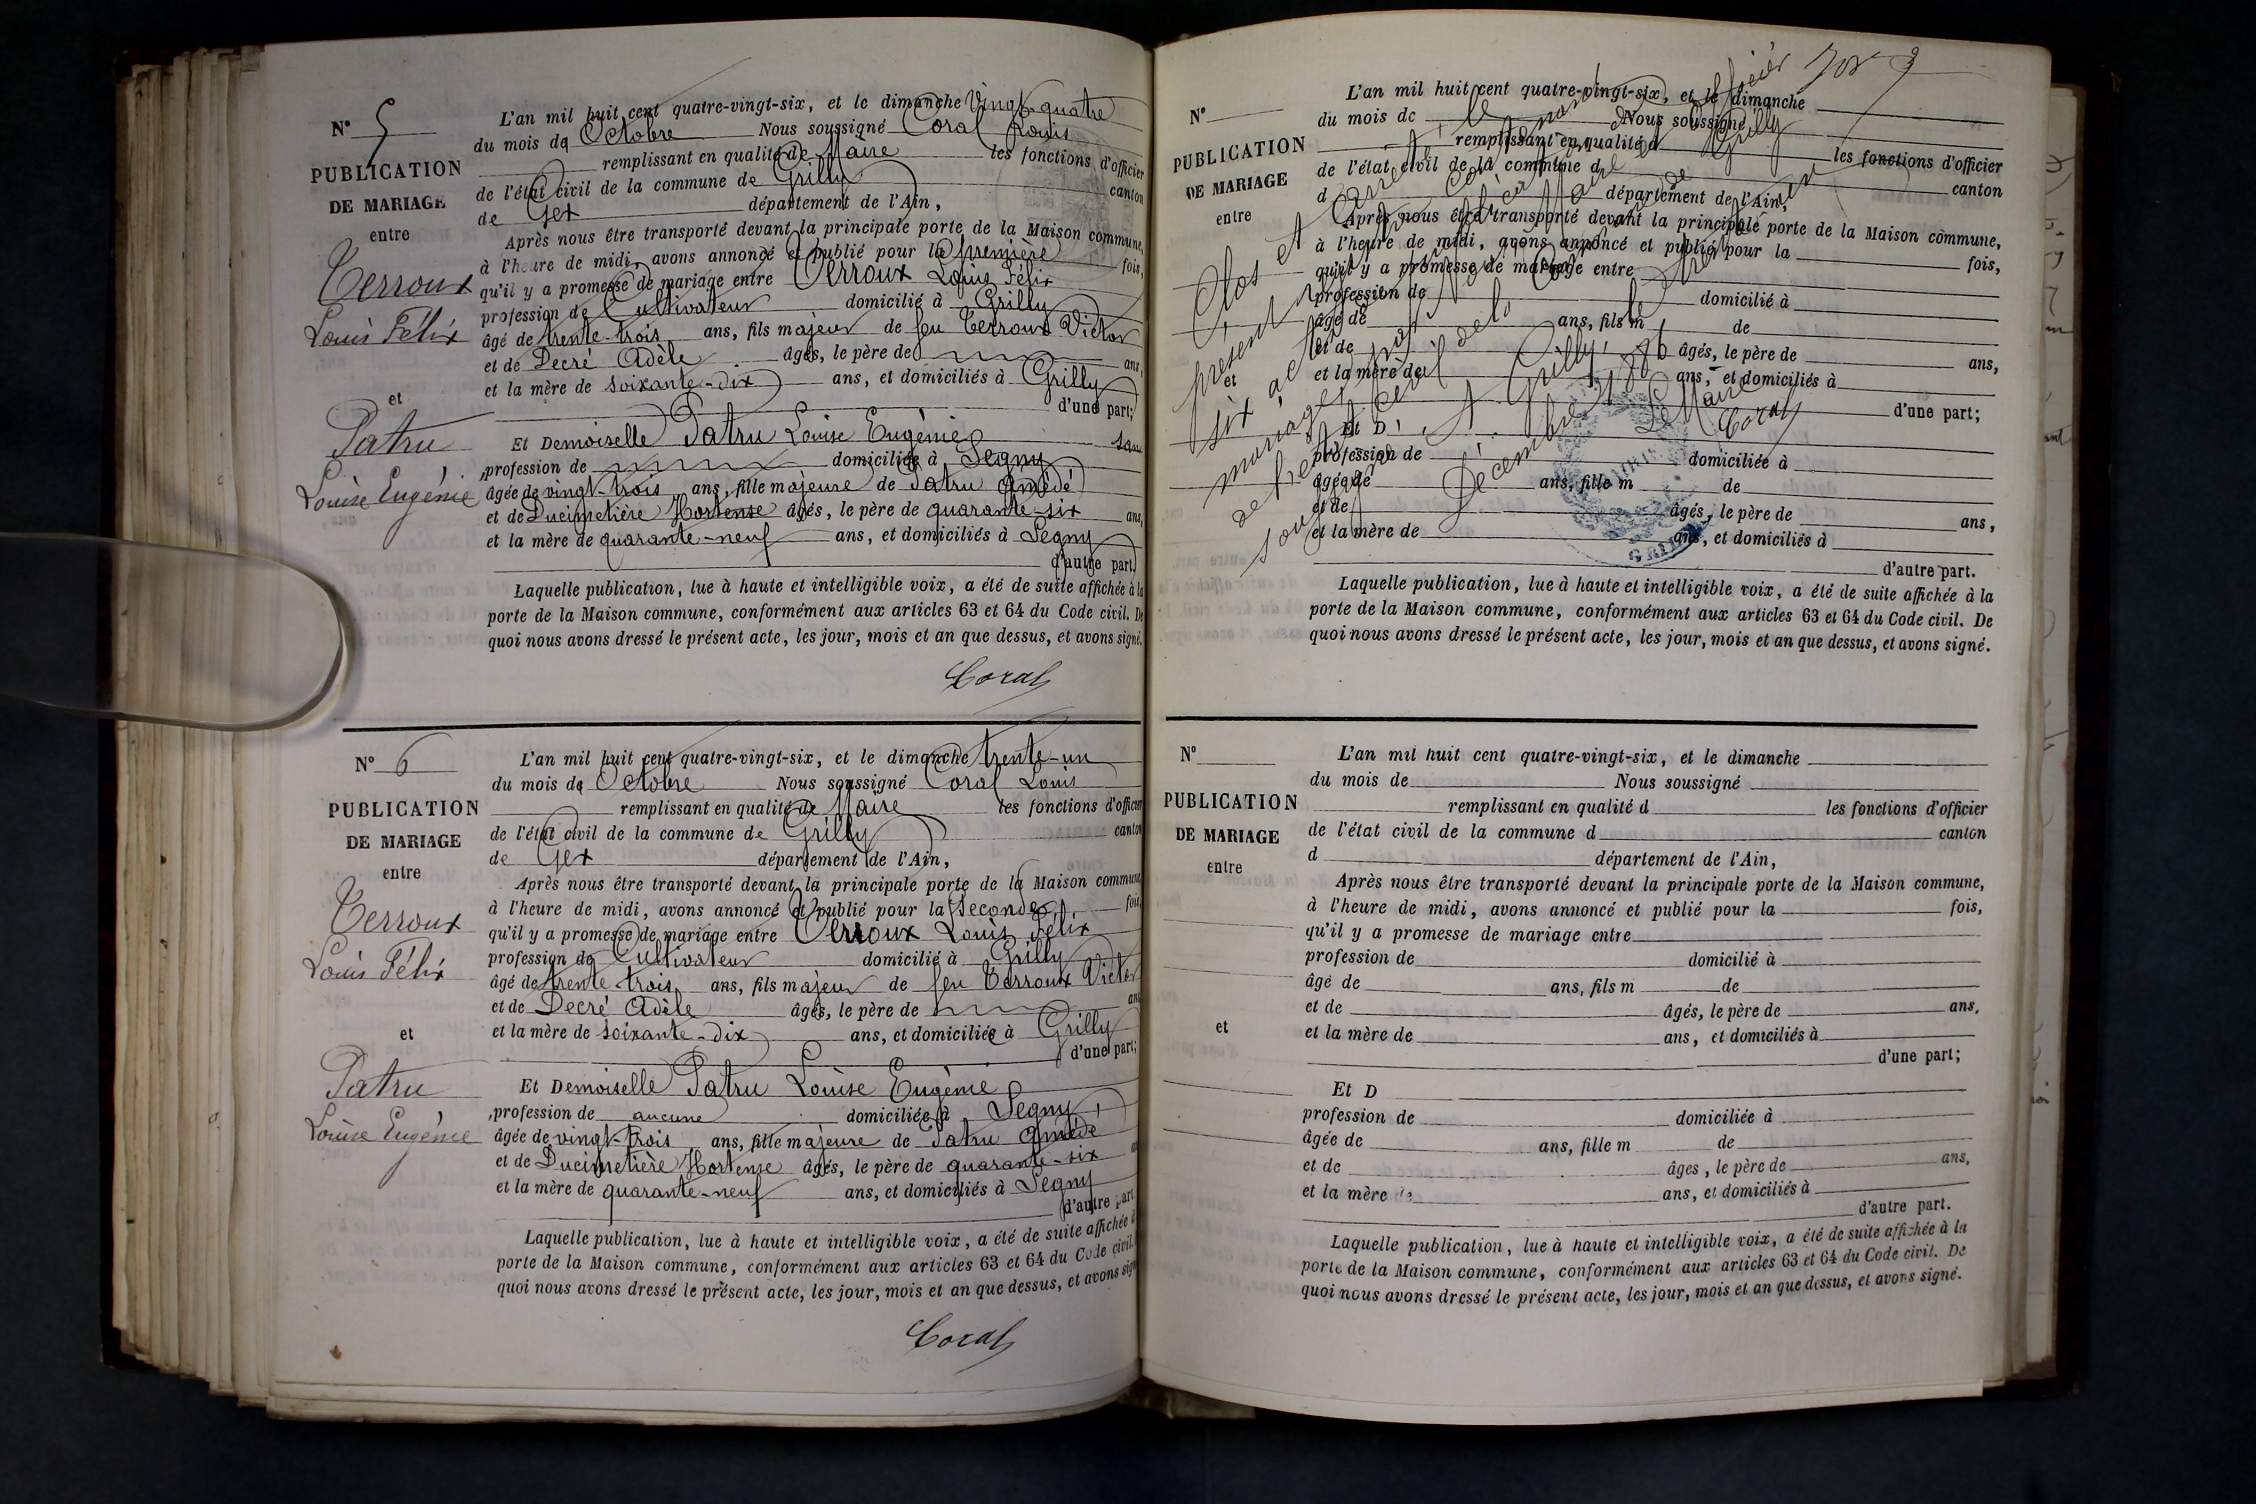 N° 5
PUBLICATION
DE MARIAGE
entre
Terroux
Louis Félix
et
Patru
Louise Eugénie
L'an mil huit cent quatre-vingt-six, et le dimanche Vingt-quatre
du mois de Octobre Nous soussigné Coral Louis
remplissant en qualité de Maire les fonctions d'officier
de l'état civil de la commune de Grilly canton
de Gex département de l'Ain,
Après nous être transporté devant la principale porte de la Maison commune,
à l'heure de midi, avons annoncé et publié pour la première fois,
qu'il y a promesse de mariage entre Terroux Louis Félix
profession de Cultivateur domicilié à Grilly
âgé de trente-trois ans, fils majeur de feu Terroux Victor
et de Decré Adèle âgés, le père de ans,
et la mère de soixante-dix ans, et domiciliés à Grilly
d'une part;
Et Demoiselle Patru Louise Eugénie sans
profession de domiciliée à Segny
âgée de vingt-trois ans, fille majeure de Patru Amédé
et de Ducimetière Hortense âgés, le père de quarante-six ans,
et la mère de quarante-neuf ans, et domiciliés à Segny
d'autre part.
Laquelle publication, lue à haute et intelligible voix, a été de suite affichée à la
porte de la Maison commune, conformément aux articles 63 et 64 du Code civil. De
quoi nous avons dressé le présent acte, les jour, mois et an que dessus, et avons signé.
Coral
N° 6
PUBLICATION
DE MARIAGE
entre
Terroux
Louis Félix
et
Patru
Louise Eugénie
L'an mil huit cent quatre-vingt-six, et le dimanche trente-un
du mois de Octobre Nous soussigné Coral Louis
remplissant en qualité de Maire les fonctions d'officier
de l'état civil de la commune de Grilly canton
de Gex département de l'Ain,
Après nous être transporté devant la principale porte de la Maison commune
à l'heure de midi, avons annoncé et publié pour la seconde fois,
qu'il y a promesse de mariage entre Terroux Louis Félix
profession de Cultivateur domicilié à Grilly
âgé de trente trois ans, fils majeur de feu Terroux Victor
et de Decré Adèle âgés, le père de ans
et la mère de soixante-dix ans, et domiciliés à Grilly
d'une part;
Et Demoiselle Patru Louise Eugénie
profession de aucune domiciliée à Segny
âgée de vingt-trois ans, fille majeure de Patru Amédé
et de Ducimetière Hortense âgés, le père de quarante-six
et la mère de quarante-neuf ans, et domiciliés à Segny
d'autre part
Laquelle publication, lue à haute et intelligible voix, a été de suite affichée à
porte de la Maison commune, conformément aux articles 63 et 64 du Code civil.
quoi nous avons dressé le présent acte, les jour, mois et an que dessus, et avons signé
Coral
N°
PUBLICATION
DE MARIAGE
entre
et
L'an mil huit cent quatre-vingt-six, et le dimanche
du mois de Nous soussigné
remplissant en qualité d les fonctions d'officier
de l'état civil de la commune d
d département de l'Ain, canton
Après nous être transporté devant la principale porte de la Maison commune,
à l'heure de midi, avons annoncé et publié pour la fois,
qu'il y a promesse de mariage entre
profession de domicilié à
âgé de ans, fils m de
et de âgés, le père de ans,
et la mère de ans, et domiciliés à
d'une part;
Et D
profession de domiciliée à
âgée de ans, fille m de
et de âgés, le père de ans,
et la mère de ans, et domiciliés à
d'autre part.
Laquelle publication, lue à haute et intelligible voix, a été de suite affichée à la
porte de la Maison commune, conformément aux articles 63 et 64 du Code civil. De
quoi nous avons dressé le présent acte, les jour, mois et an que dessus, et avons signé.
Clos et arrêté le
présent
six actes
mariage par Nous Coral Louis Maire et officier
de l'état civil de la Commune de Grilly
soussigné
A Grilly, le
Décembre 1886
Le Maire
Coral
N°
PUBLICATION
DE MARIAGE
entre
et
L'an mil huit cent quatre-vingt-six, et le dimanche
du mois de Nous soussigné
remplissant en qualité d les fonctions d'officier
de l'état civil de la commune d canton
d département de l'Ain,
Après nous être transporté devant la principale porte de la Maison commune,
à l'heure de midi, avons annoncé et publié pour la fois,
qu'il y a promesse de mariage entre
profession de domicilié à
âgé de ans, fils m de
et de âgés, le père de ans,
et la mère de ans, et domiciliés à
d'une part;
Et D
profession de domiciliée à
âgée de ans, fille m de
et de âges, le père de ans,
et la mère de ans, et domiciliés à
d'autre part.
Laquelle publication, lue à haute et intelligible voix, a été de suite affichée à la
porte de la Maison commune, conformément aux articles 63 et 64 du Code civil. De
quoi nous avons dressé le présent acte, les jour, mois et an que dessus, et avons signé.